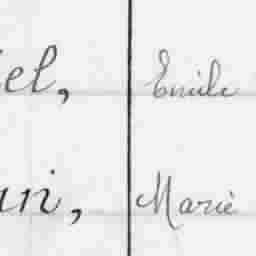 el, Emile
ni, Marie